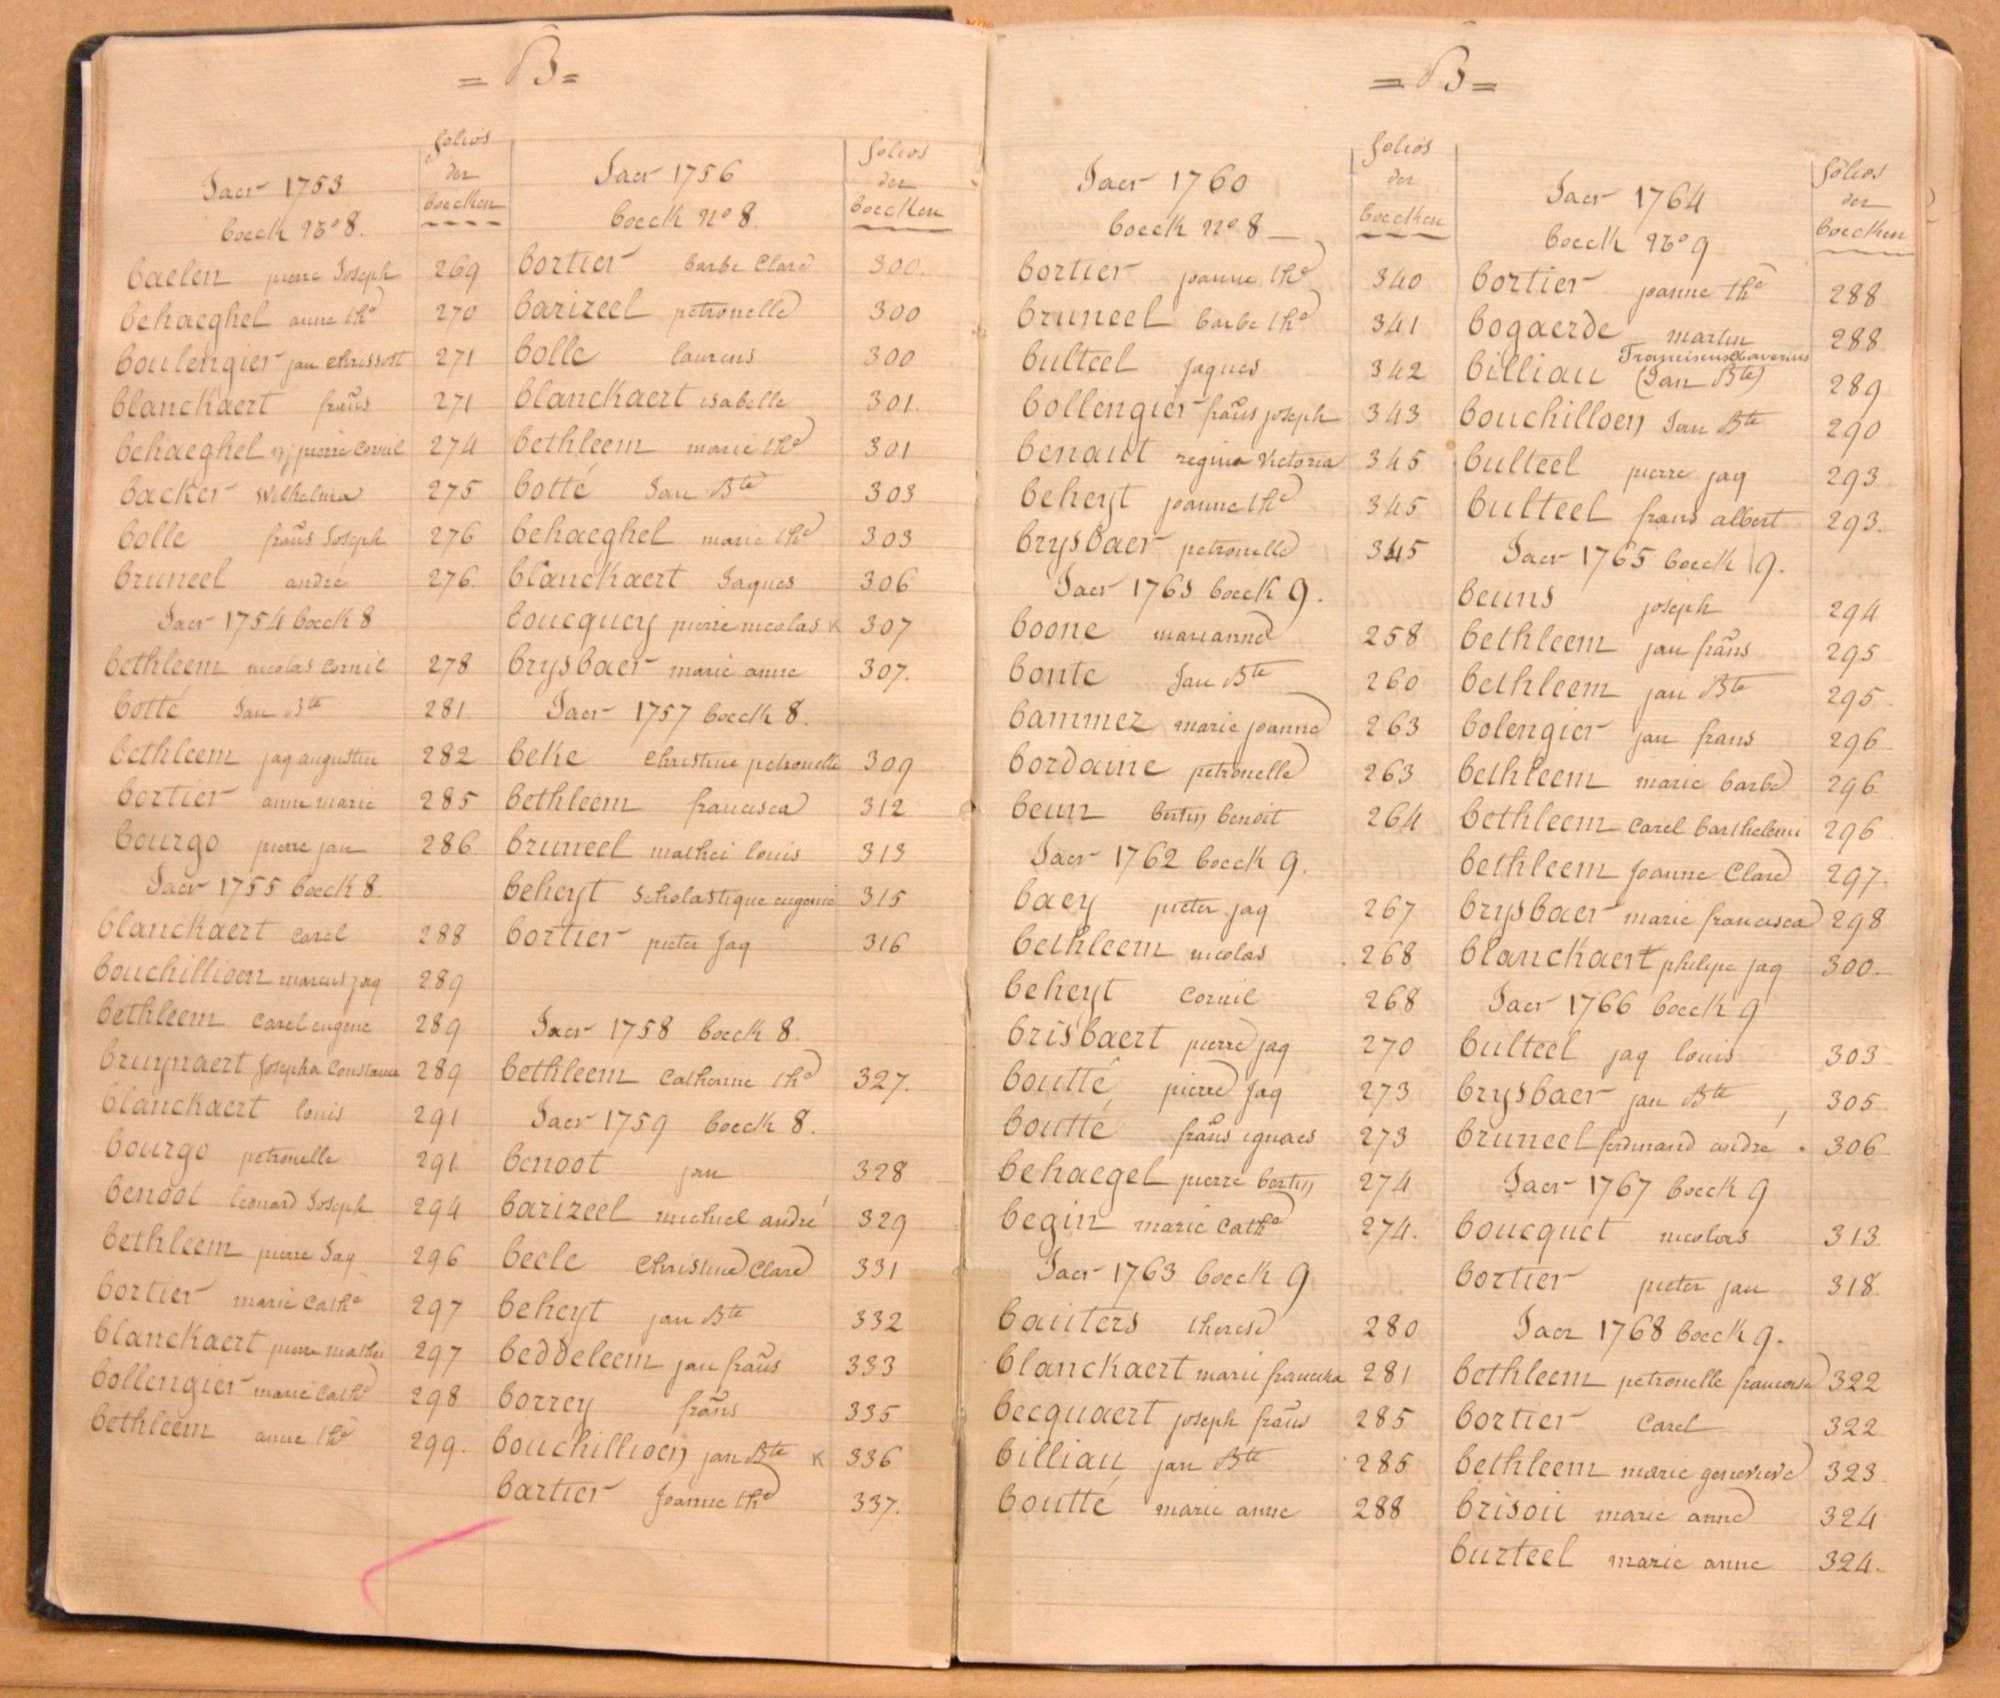 = B =
Jaer 1753
boeck No 8.
folios
der
boecken
baelen pierre Joseph 269
behaeghel anne the 270
boulengier jan Chrissost 271
blanckaert frans 271
behaeghel pierre Cornil 274
backer Wilhelma 275
bolle frans Joseph 276
bruneel andré 276.
Jaer 1754 boeck 8
bethleem nicolas Cornil 278
botté Jan Bte 281
bethleem jaq augustin 282
bortier anne marie 285
bourgo pierre jan 286.
Jaer 1755 boeck 8.
blanckaert Carel 288
bouchillioen marcus jaq 289
bethleem Carel eugene 289
bruynaert Josepha Constance 289
blanckaert louis 291
bourgo petronelle 291
benoot leonard Joseph 294
bethleem pierre Jaq 296
bortier marie Cathe 297
blanckaert pierre mathei 297
bollengier marie Cathe 298
bethleem anne the 299.
Jaer 1756
boeck No 8.
folios
der
boecken
bortier barbe Clare 300.
barizeel petronelle 300
bolle laurens 300
blanckaert isabelle 301.
bethleem marie the 301
botté Jan Bte 303
behaeghel marie the 303
blanckaert Jaques 306
boucquey pierre nicolas x 307
brysbaer marie anne 307.
Jaer 1757 boeck 8.
beke Christine petronelle 309
bethleem francisca 312
bruneel mathei louis 313
beheyt Scholastique eugenie 315
bortier pieter Jaq 316
Jaer 1758 boeck 8.
bethleem Catherine the 327.
Jaer 1759 boeck 8.
benoot jan 328
barizeel michiel andré 329
beele Christine Clare 331
beheyt jan Bte 332
beddeleem jan frans 333
borrey frans 335
bouchillioen jan Bte x 336
bartier Jeanne the 337.
= B =
Jaer 1760
boeck No 8
folios
der
boecken
bortier joanne the 340
bruneel barbe the 341
bulteel Jaques 342
bollengier frans joseph 343
benaut regina Victoria 345
beheyt joanne the 345
brysbaer petronelle 345
Jaer 1763 boeck 9.
boone marianne 258
bonte Jan Bte 260
bammez marie joanne 263
bordaine petronelle 263
beun bertin benoit 264
Jaer 1762 boeck 9.
baey pieter jaq 267
bethleem nicolas 268
beheyt Cornil 268
brisbaert pierre jaq 270
boutté pierre Jaq 273
boutté frans ignaes 273
behaegel pierre bertin 274
begin marie Cathe 274.
Jaer 1763 boeck 9
bauters therese 280
blanckaert marie franciska 281
becquaert joseph frans 285
billiau jan Bte 285
boutté marie anne 288
Jaer 1764
boeck No 9
folios
der
boecken
bortier joanne the 288
bogaerde martin 288
Franciscus Xaverius
billiau (Jan Bte) 289
bouchilloen Jan Bte 290
bulteel pierre jaq 293
bulteel frans albert 293.
Jaer 1765 boeck 9.
beuns joseph 294
bethleem jan frans 295
bethleem jan Bte 295
bolengier jan frans 296
bethleem marie barbe 296
bethleem Carel barthelemi 296
bethleem Joanne Clare 297.
brysbaer marie francisca 298
blanckaert philipe jaq 300.
Jaer 1766 boeck 9
bulteel jaq louis 303
brysbaer jan Bte 305
bruneel ferdinand andré 306
Jaer 1767 boeck 9
boucquet nicolas 313
bortier pieter jan 318
Jaer 1768 boeck 9.
bethleem petronelle francoise 322
bortier Carel 322
bethleem marie genevieve 323
brisou marie anne 324
burteel marie anne 324.